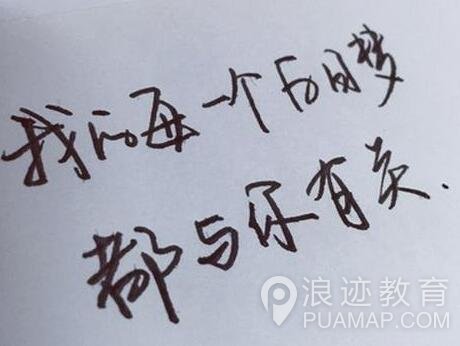 我的每一个白日梦
都与你有关.
浪迹教育
PUAMAP.COM